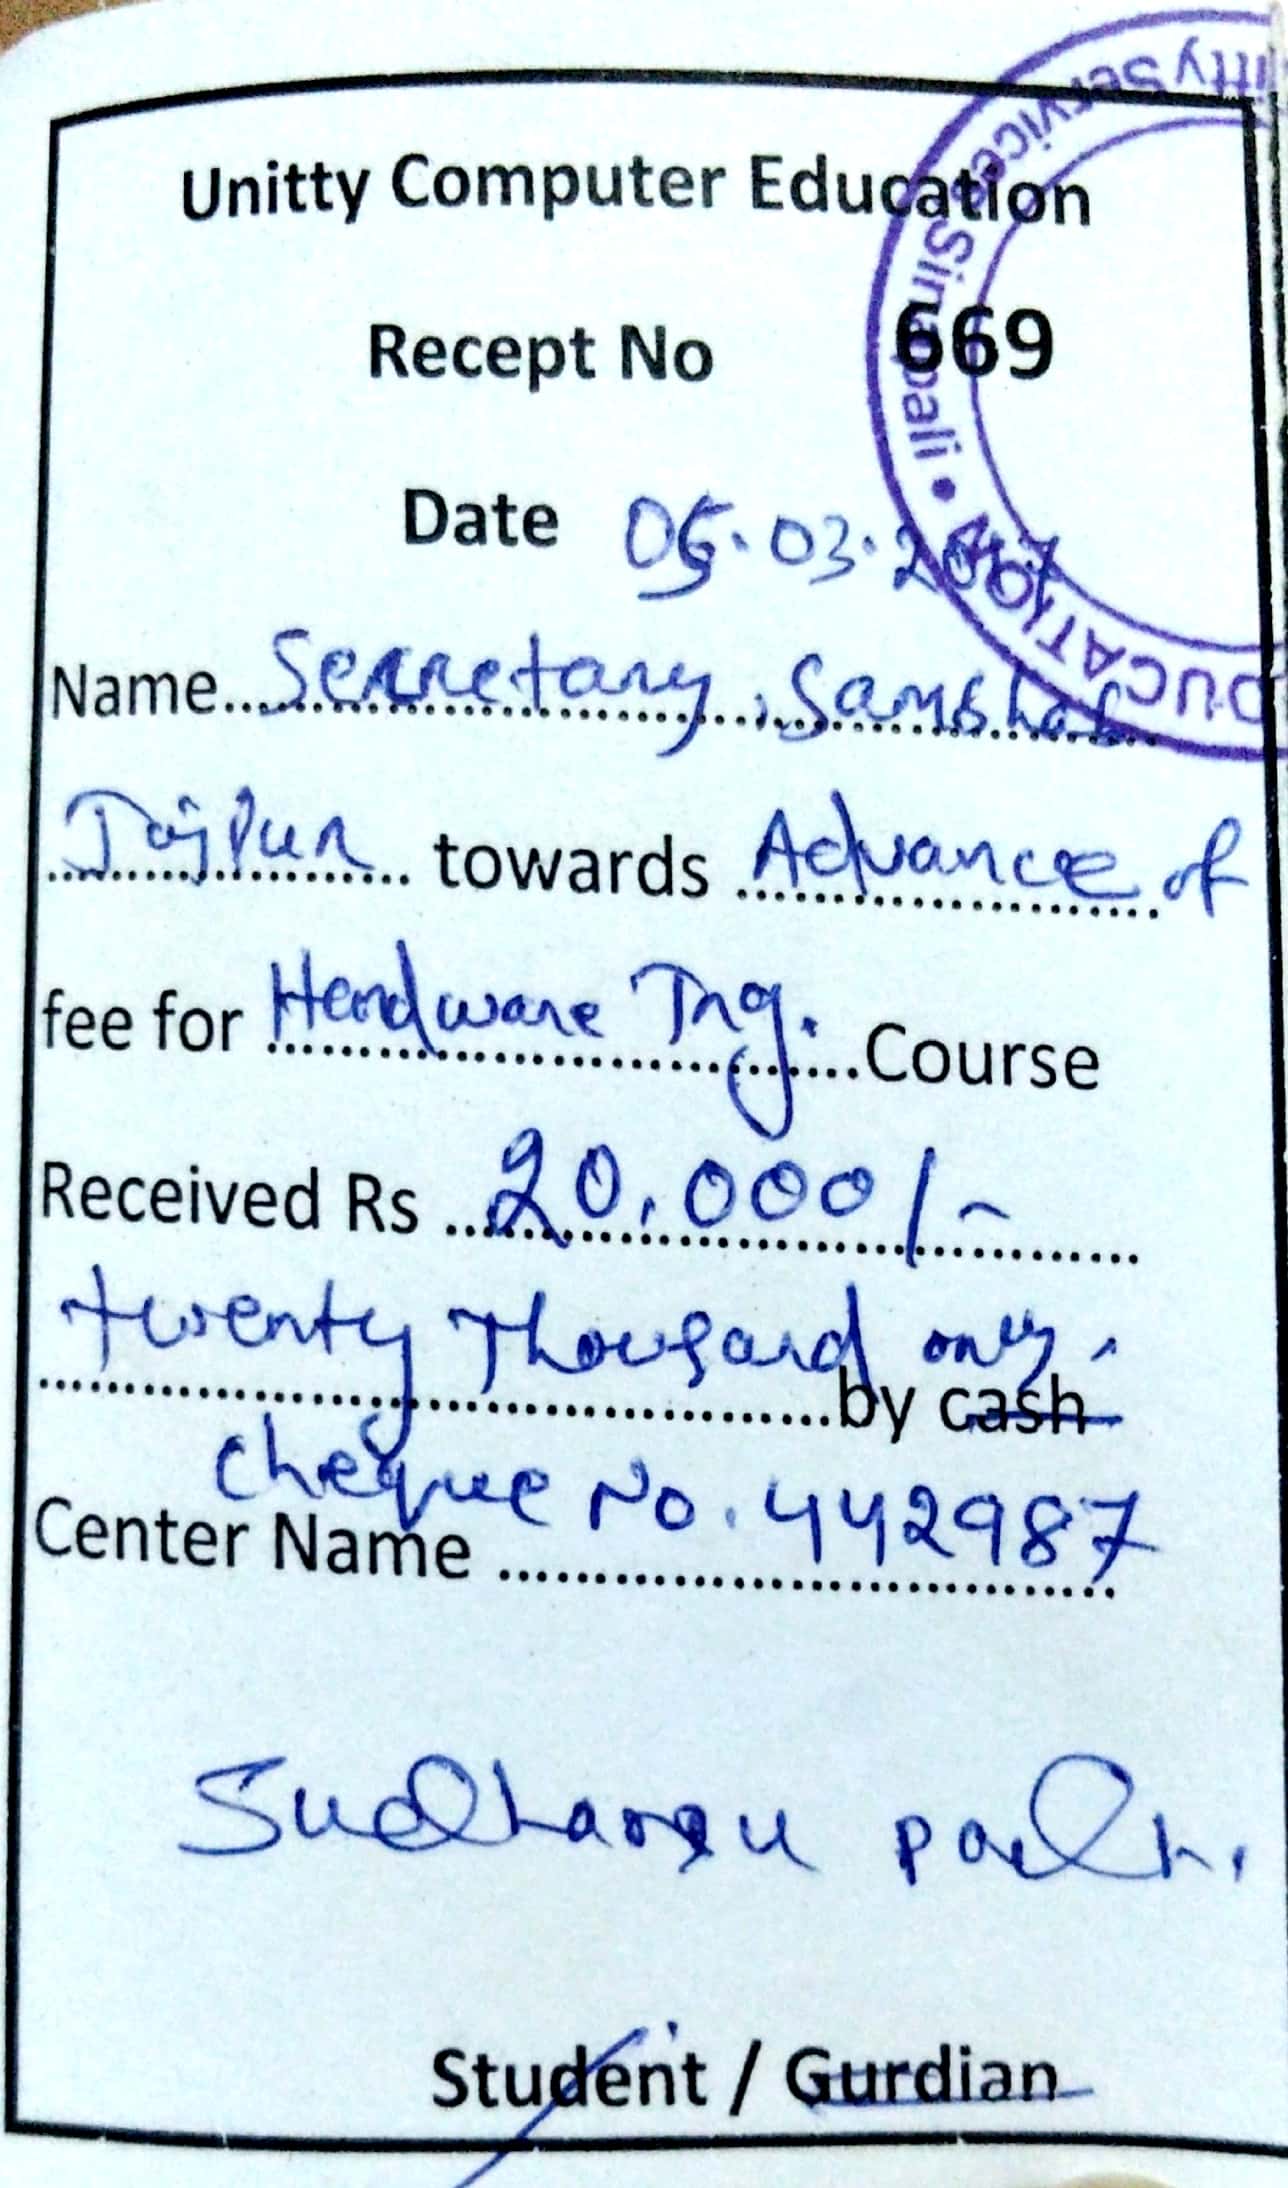 Unitty Computer Education
Recept No 669
Date 05.03.2017
Name Secretary, Samshat
Jajpur towards Advance of
fee for Hardware Tng. Course
Received Rs 20,000/-
twenty Thousand only
by cash
cheque No. 442987
Center Name
Sudhansu
Student / Gurdian
itty Services Sinapali •
DUCATION